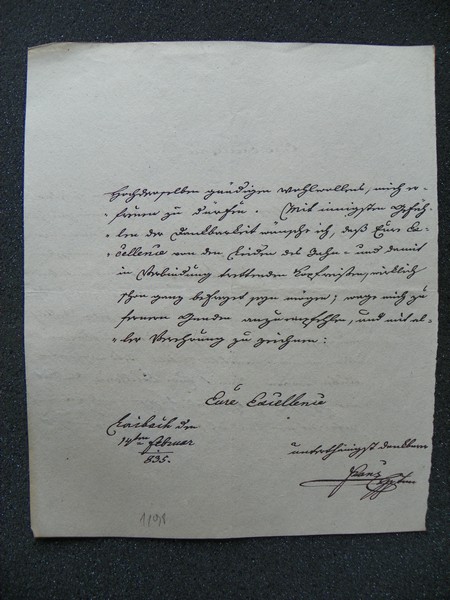 Hochderselben gnädigen Wohlwollens, mich er-
freuen zu dürfen. Mit innigsten Gefüh-
len der Dankbarkeit wünsche ich, daß Eure Ex-
cellence von den Leiden des Zahn- und damit
in Verbindung trettenden Kopfreissens, wirklich
schon ganz befreyet seyn mögen; wage mich zu
fernern Gnaden anzuempfehlen, und mit al-
ler Verehrung zu zeichnen:
Eure Excellence
Laibach den
14ten Februar
835.
unterthänigst dankbarer
Franz
1198